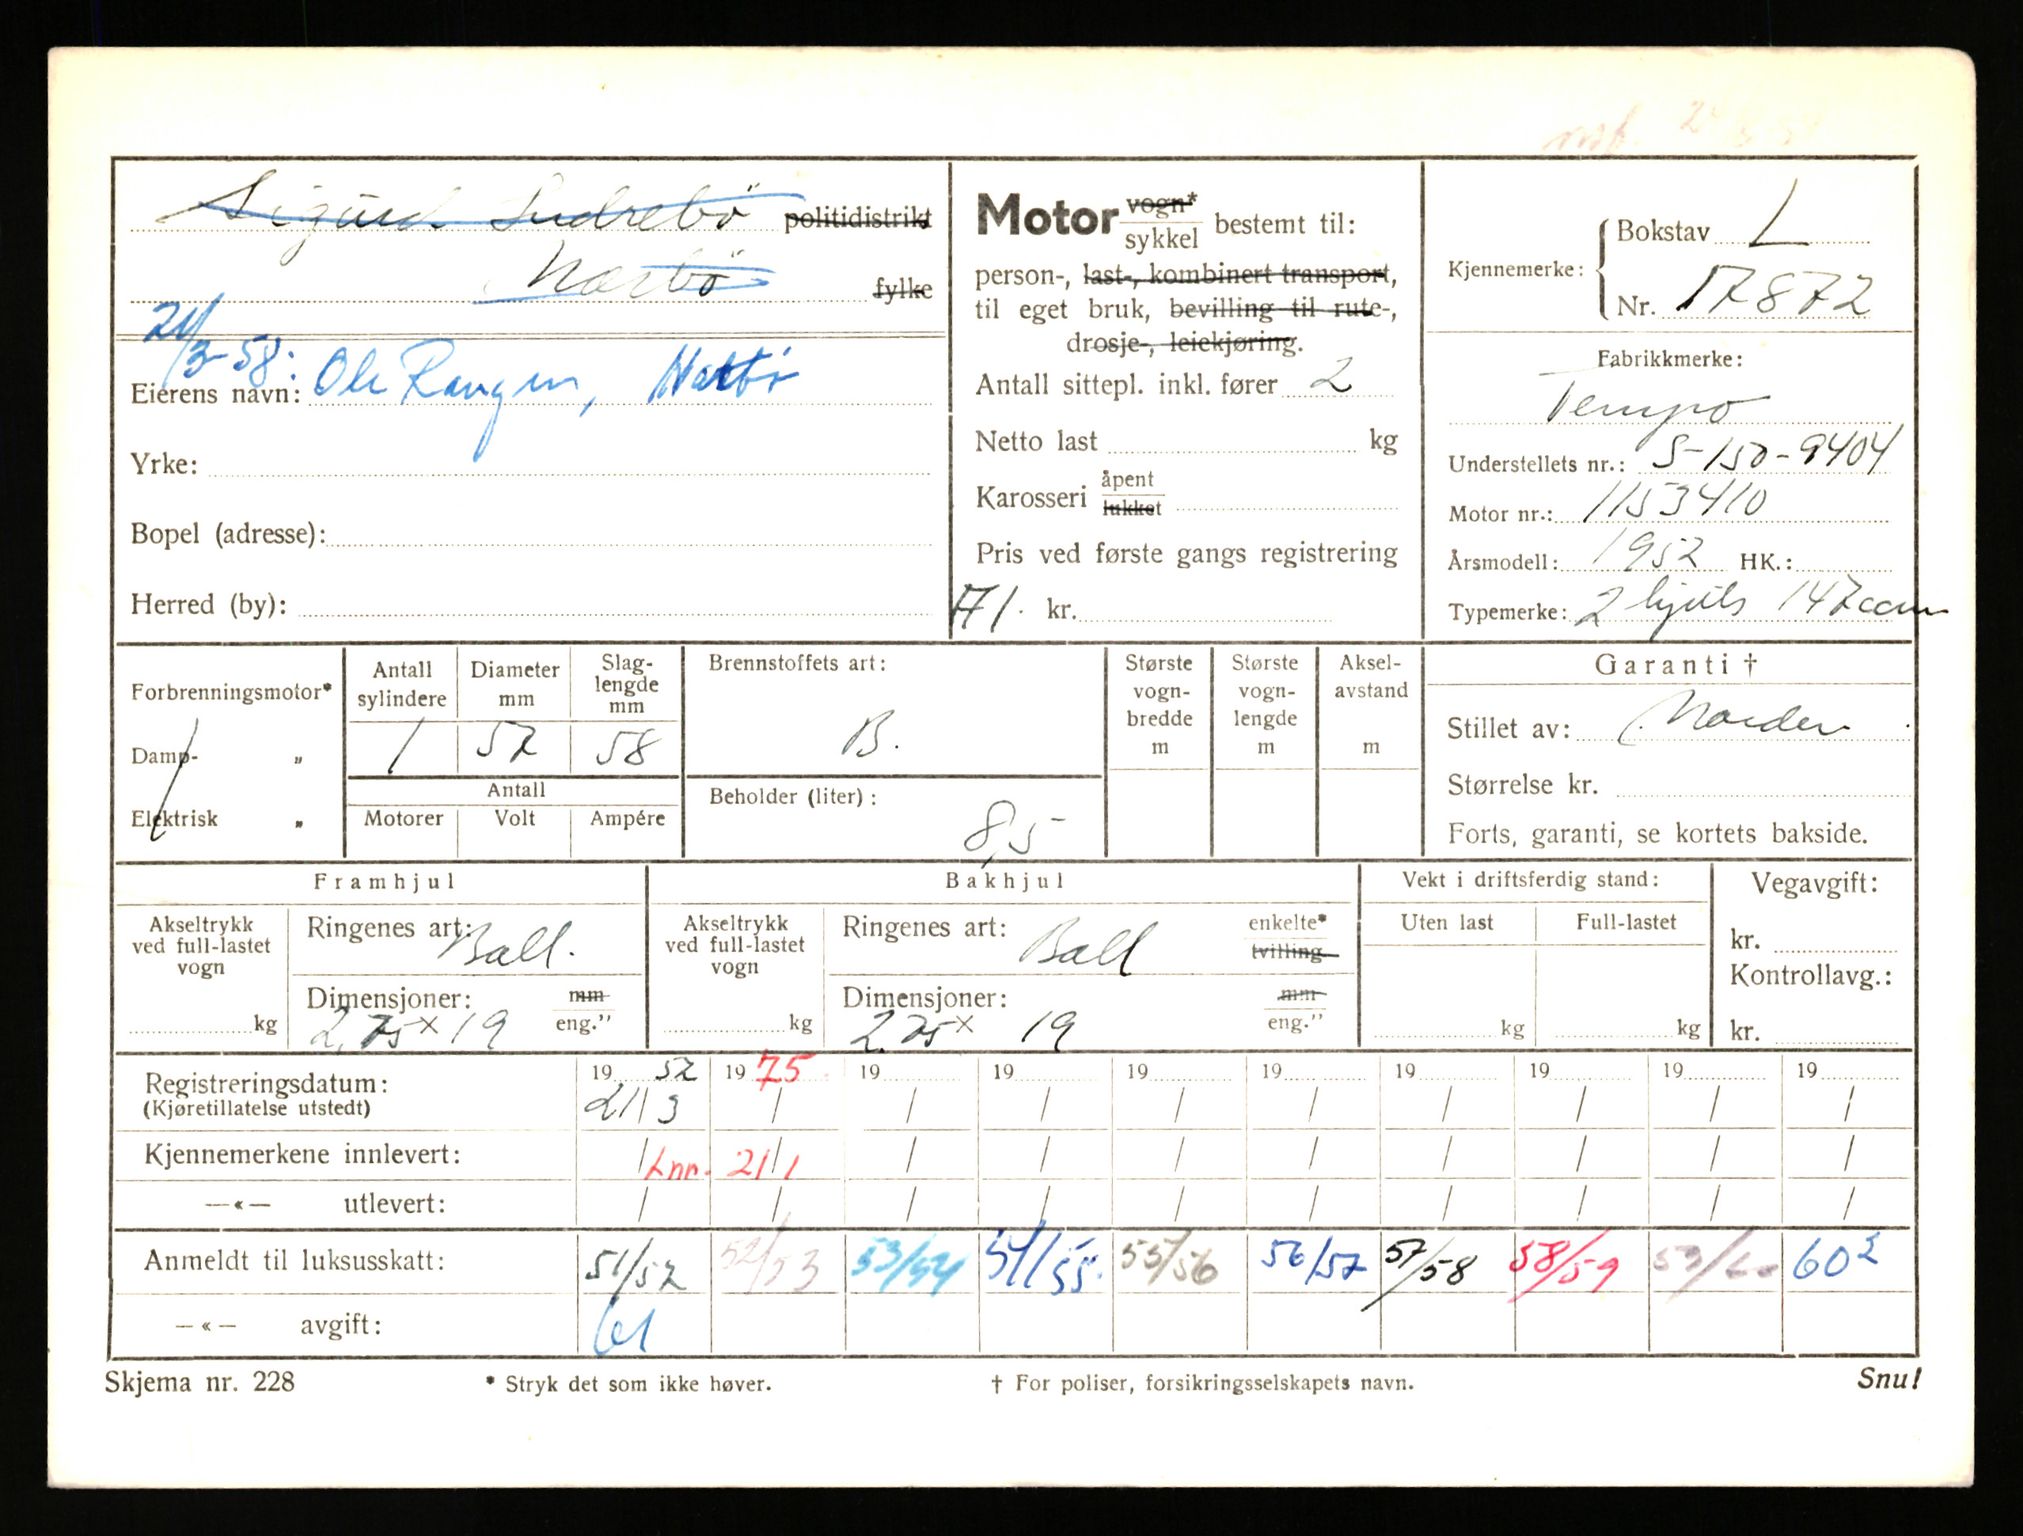 Sigurd Sudrebö politidistrikt
Nærbö fylke
21/3-58:
Eierens navn: Ole Rangen, Nærbö
Yrke:
Bopel (adresse):
Herred (by):
Motor vogn* sykkel bestemt til:
person-, last-, kombinert transport,
til eget bruk, bevilling til rute-,
drosje-, leiekjøring.
Antall sittepl. inkl. fører 2
Netto last kg
Karosseri åpent lukket
Pris ved første gangs registrering
kr.
Kjennemerke: Bokstav L
Nr. 17872
Fabrikkmerke:
Tempo
Understellets nr.: S-150-9404
Motor nr.: 1153410
Årsmodell: 1952 HK.:
Typemerke: 2 hjuls 147 ccm
Forbrenningsmotor*
Damp- „
Elektrisk „
Antall sylindere 1
Diameter mm 57
Slaglengde mm 58
Antall
Motorer Volt Ampére
Brennstoffets art:
B.
Beholder (liter):
8,5
Største vognbredde m
Største vognlengde m
Akselavstand m
Garanti †
Stillet av: Norden
Størrelse kr.
Forts, garanti, se kortets bakside.
Framhjul
Akseltrykk ved full-lastet vogn
kg
Ringenes art: Ball.
Dimensjoner: mm
2.75 x 19 eng.”
Bakhjul
Akseltrykk ved full-lastet vogn
kg
Ringenes art: Ball enkelte* tvilling
Dimensjoner: mm
2.75 x 19 eng.”
Vekt i driftsferdig stand:
Uten last Full-lastet
kg kg
Vegavgift:
kr.
Kontrollavg.:
kr.
Registreringsdatum: 19 52 19 75 19 19 19 19 19 19 19 19
(Kjøretillatelse utstedt) 21/3 / / / / / / / / /
Kjennemerkene innlevert: / Inn. 21/1 / / / / / / / /
—«— utlevert: / / / / / / / / / /
Anmeldt til luksusskatt: 51/52 52/53 53/54 54/55. 55/56 56/57 57/58 58/59 59/60 60
—«— avgift: 61
Skjema nr. 228
* Stryk det som ikke høver.
† For poliser, forsikringsselskapets navn.
Snu!